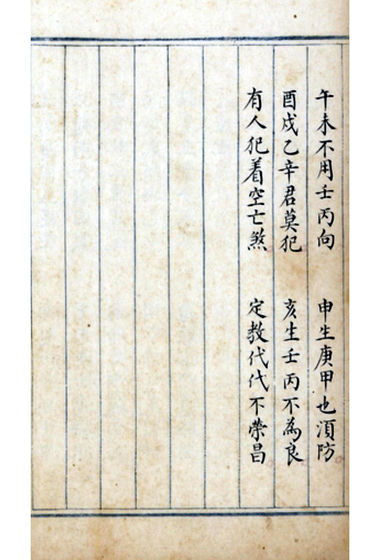 午未不用壬丙向 申生庚甲也湏防
酉戍乙辛君莫犯 亥生壬丙不為良
有人犯着空亡煞 定教代代不榮昌